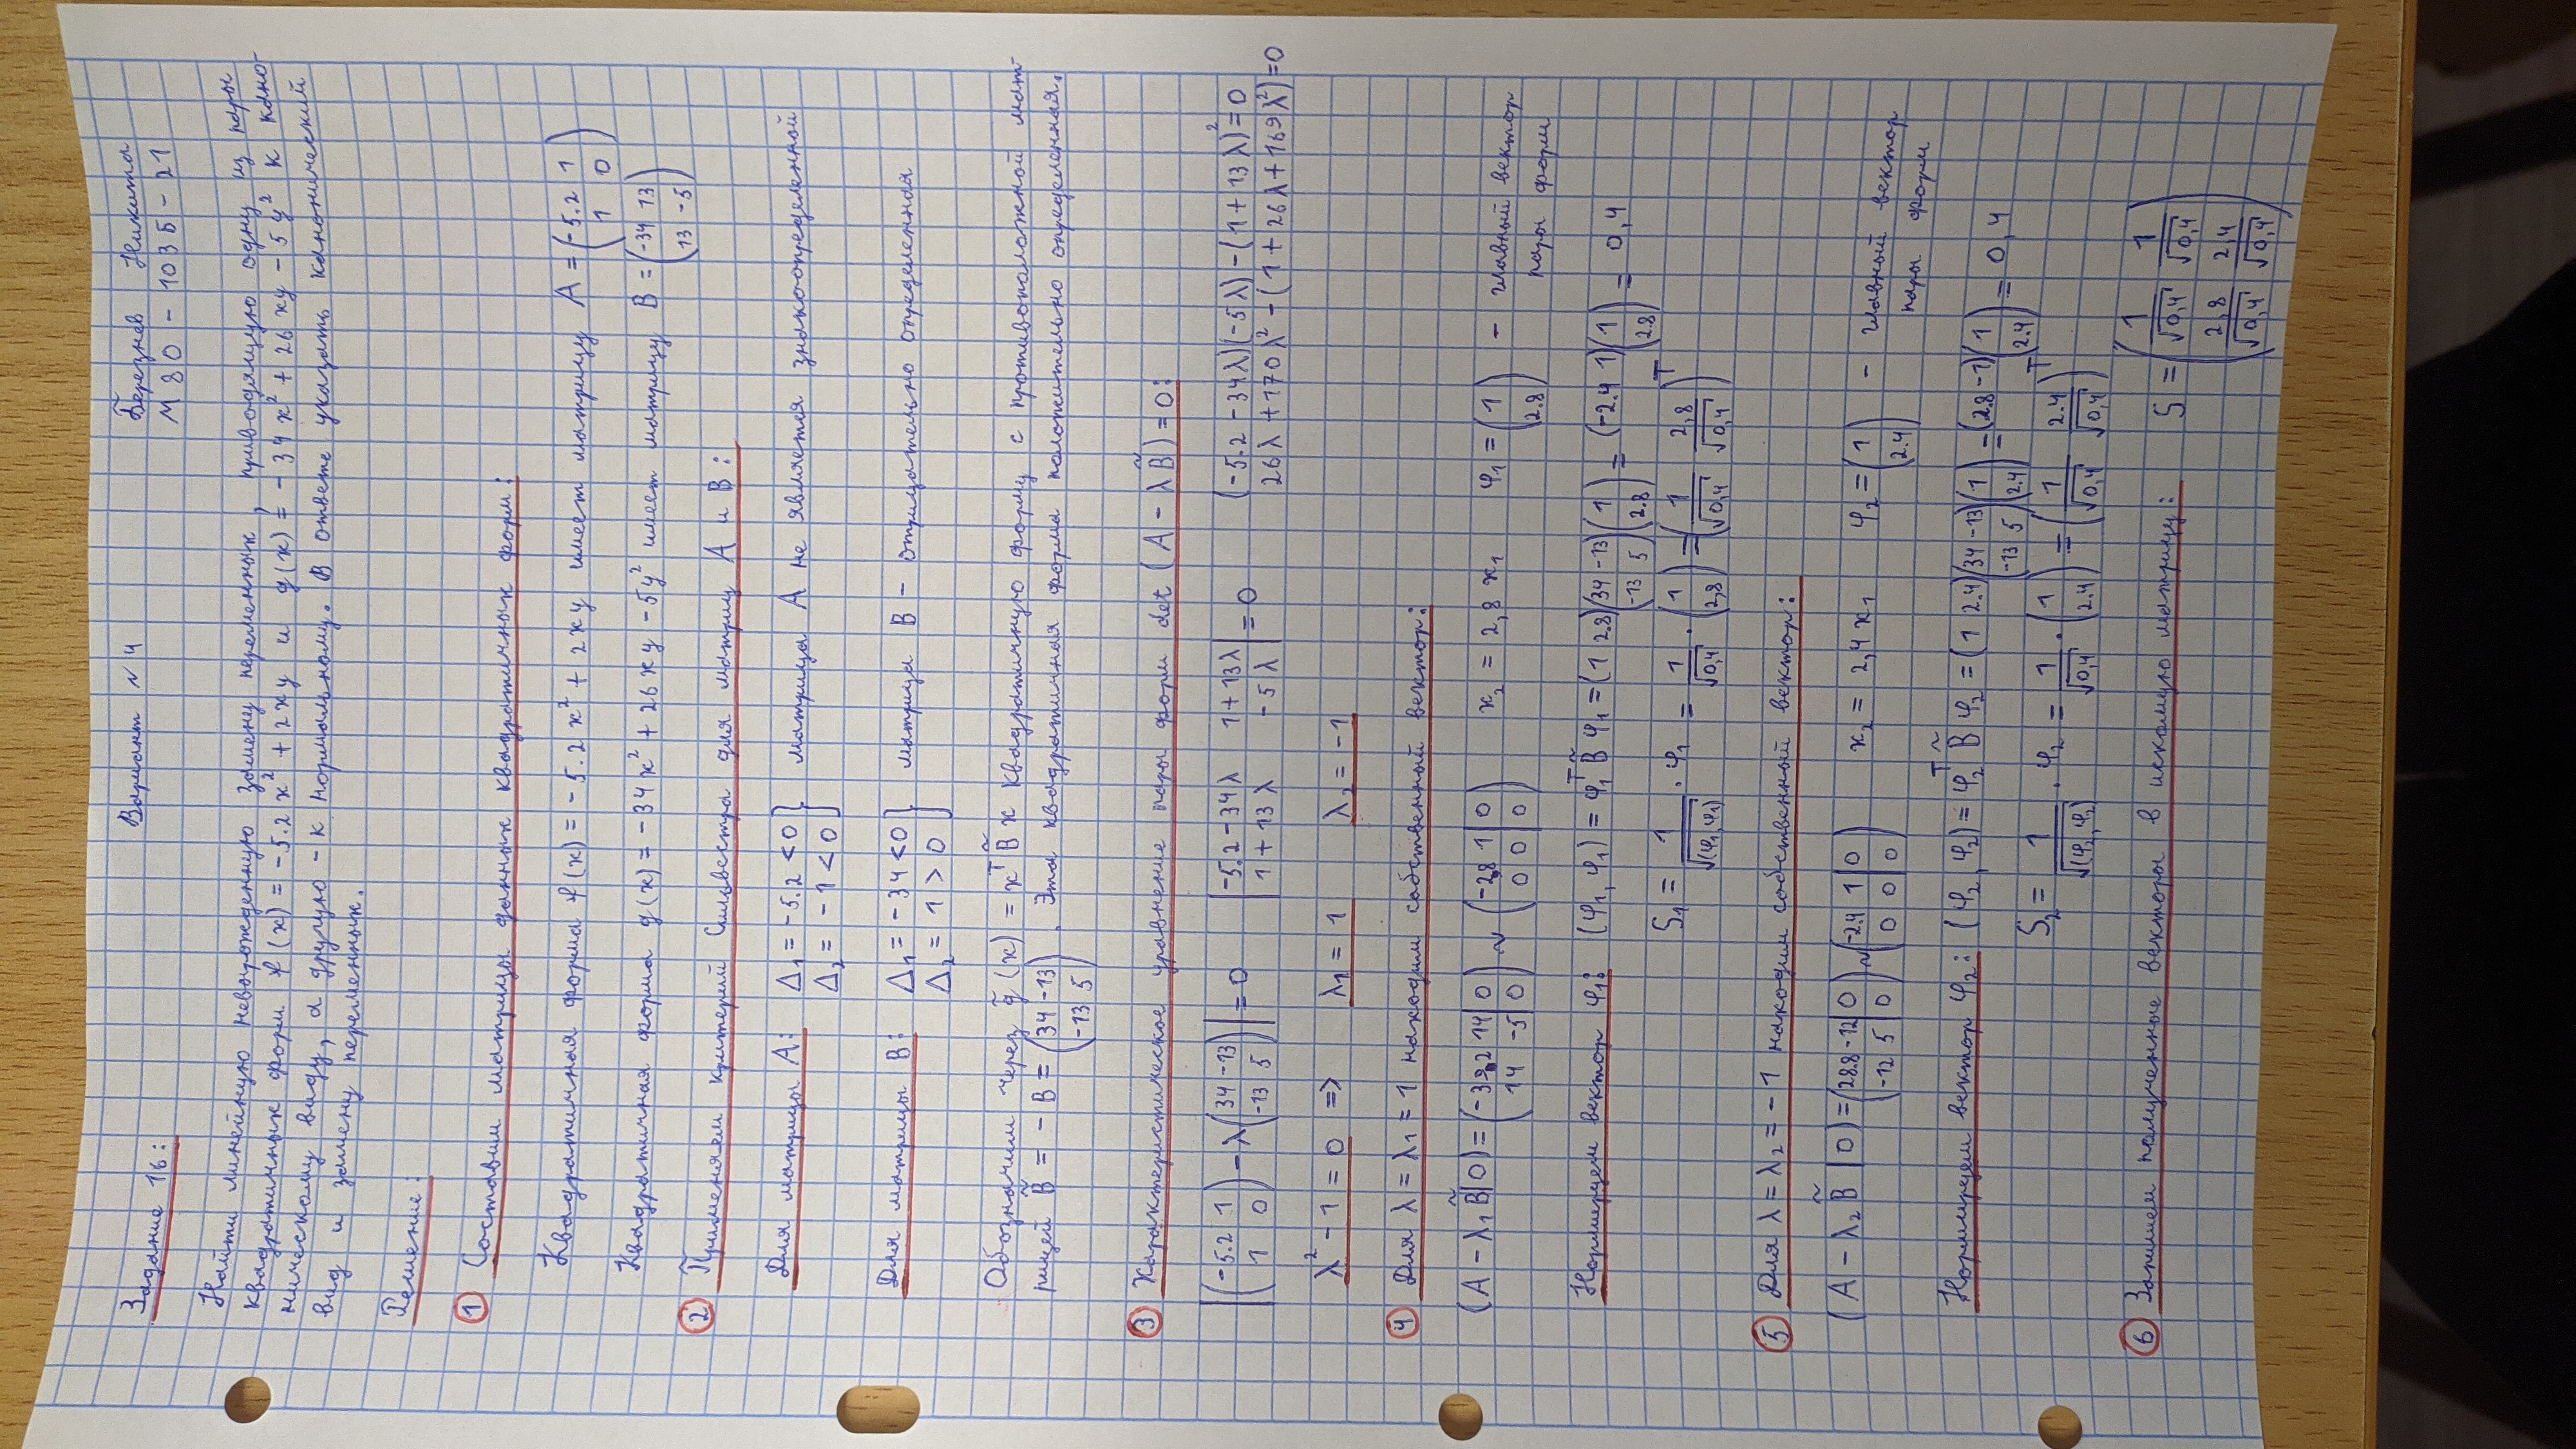 Задание 16:
Вариант № 4
Березнев Никита
М80 - 103Б - 21
Найти линейную невырожденную замену переменных, приводящую одну из пары
квадратичных форм f(x) = -5.2x² + 2xy и g(x) = -34x² + 26xy - 5y² к кано-
ническому виду, а другую - к нормальному. В ответе указать канонический
вид и замену переменных.
Решение:
① Составим матрицы данных квадратичных форм:
Квадратичная форма f(x) = -5.2x² + 2xy имеет матрицу A = (-5.2 1
1 0)
Квадратичная форма g(x) = -34x² + 26xy - 5y² имеет матрицу B = (-34 13
13 -5)
② Применяем критерий Сильвестра для матриц A и B:
Для матрицы A: Δ₁ = -5.2 < 0 } матрица A не является знакоопределенной
Δ₂ = -1 < 0
Для матрицы B: Δ₁ = -34 < 0 } матрица B - отрицательно определенная
Δ₂ = 1 > 0
Обозначим через g̃(x) = xᵀB̃x квадратичную форму с противоположной мат-
рицей B̃ = -B = (34 -13 . Эта квадратичная форма положительно определенная.
-13 5)
③ Характеристическое уравнение пары форм det(A - λB̃) = 0:
|(-5.2 1 - λ(34 -13| = 0 |-5.2-34λ 1+13λ| = 0 (-5.2-34λ)(-5λ) - (1+13λ)² = 0
1 0) -13 5) 1+13λ -5λ 26λ + 170λ² - (1+26λ+169λ²) = 0
λ² - 1 = 0 => λ₁ = 1 λ₂ = -1
④ Для λ = λ₁ = 1 находим собственный вектор:
(A - λ₁B̃|0) = (-39,2 14|0 ~ (-2.8 1|0 x₂ = 2,8x₁ φ₁ = (1 - главный вектор
14 -5|0) 0 0|0) 2.8) пары форм
Нормируем вектор φ₁: (φ₁, φ₁) = φ₁ᵀB̃φ₁ = (1 2.8)(34 -13)(1) = (-2.4 1)(1) = 0,4
-13 5 2.8 2.8
S₁ = 1/√(φ₁,φ₁) · φ₁ = 1/√0,4 · (1 2,8) = (1/√0,4 2,8/√0,4)ᵀ
⑤ Для λ = λ₂ = -1 находим собственный вектор:
(A - λ₂B̃|0) = (28.8 -12|0 ~ (-2.4 1|0 x₂ = 2,4x₁ φ₂ = (1 - главный вектор
-12 5|0) 0 0|0) 2.4) пары форм
Нормируем вектор φ₂: (φ₂, φ₂) = φ₂ᵀB̃φ₂ = (1 2.4)(34 -13)(1) = (2.8 -1)(1) = 0,4
-13 5 2.4 2.4
S₂ = 1/√(φ₂,φ₂) · φ₂ = 1/√0,4 · (1 2.4) = (1/√0,4 2.4/√0,4)ᵀ
⑥ Запишем полученные векторы в искомую матрицу: S = (1/√0,4 1/√0,4
2,8/√0,4 2,4/√0,4)